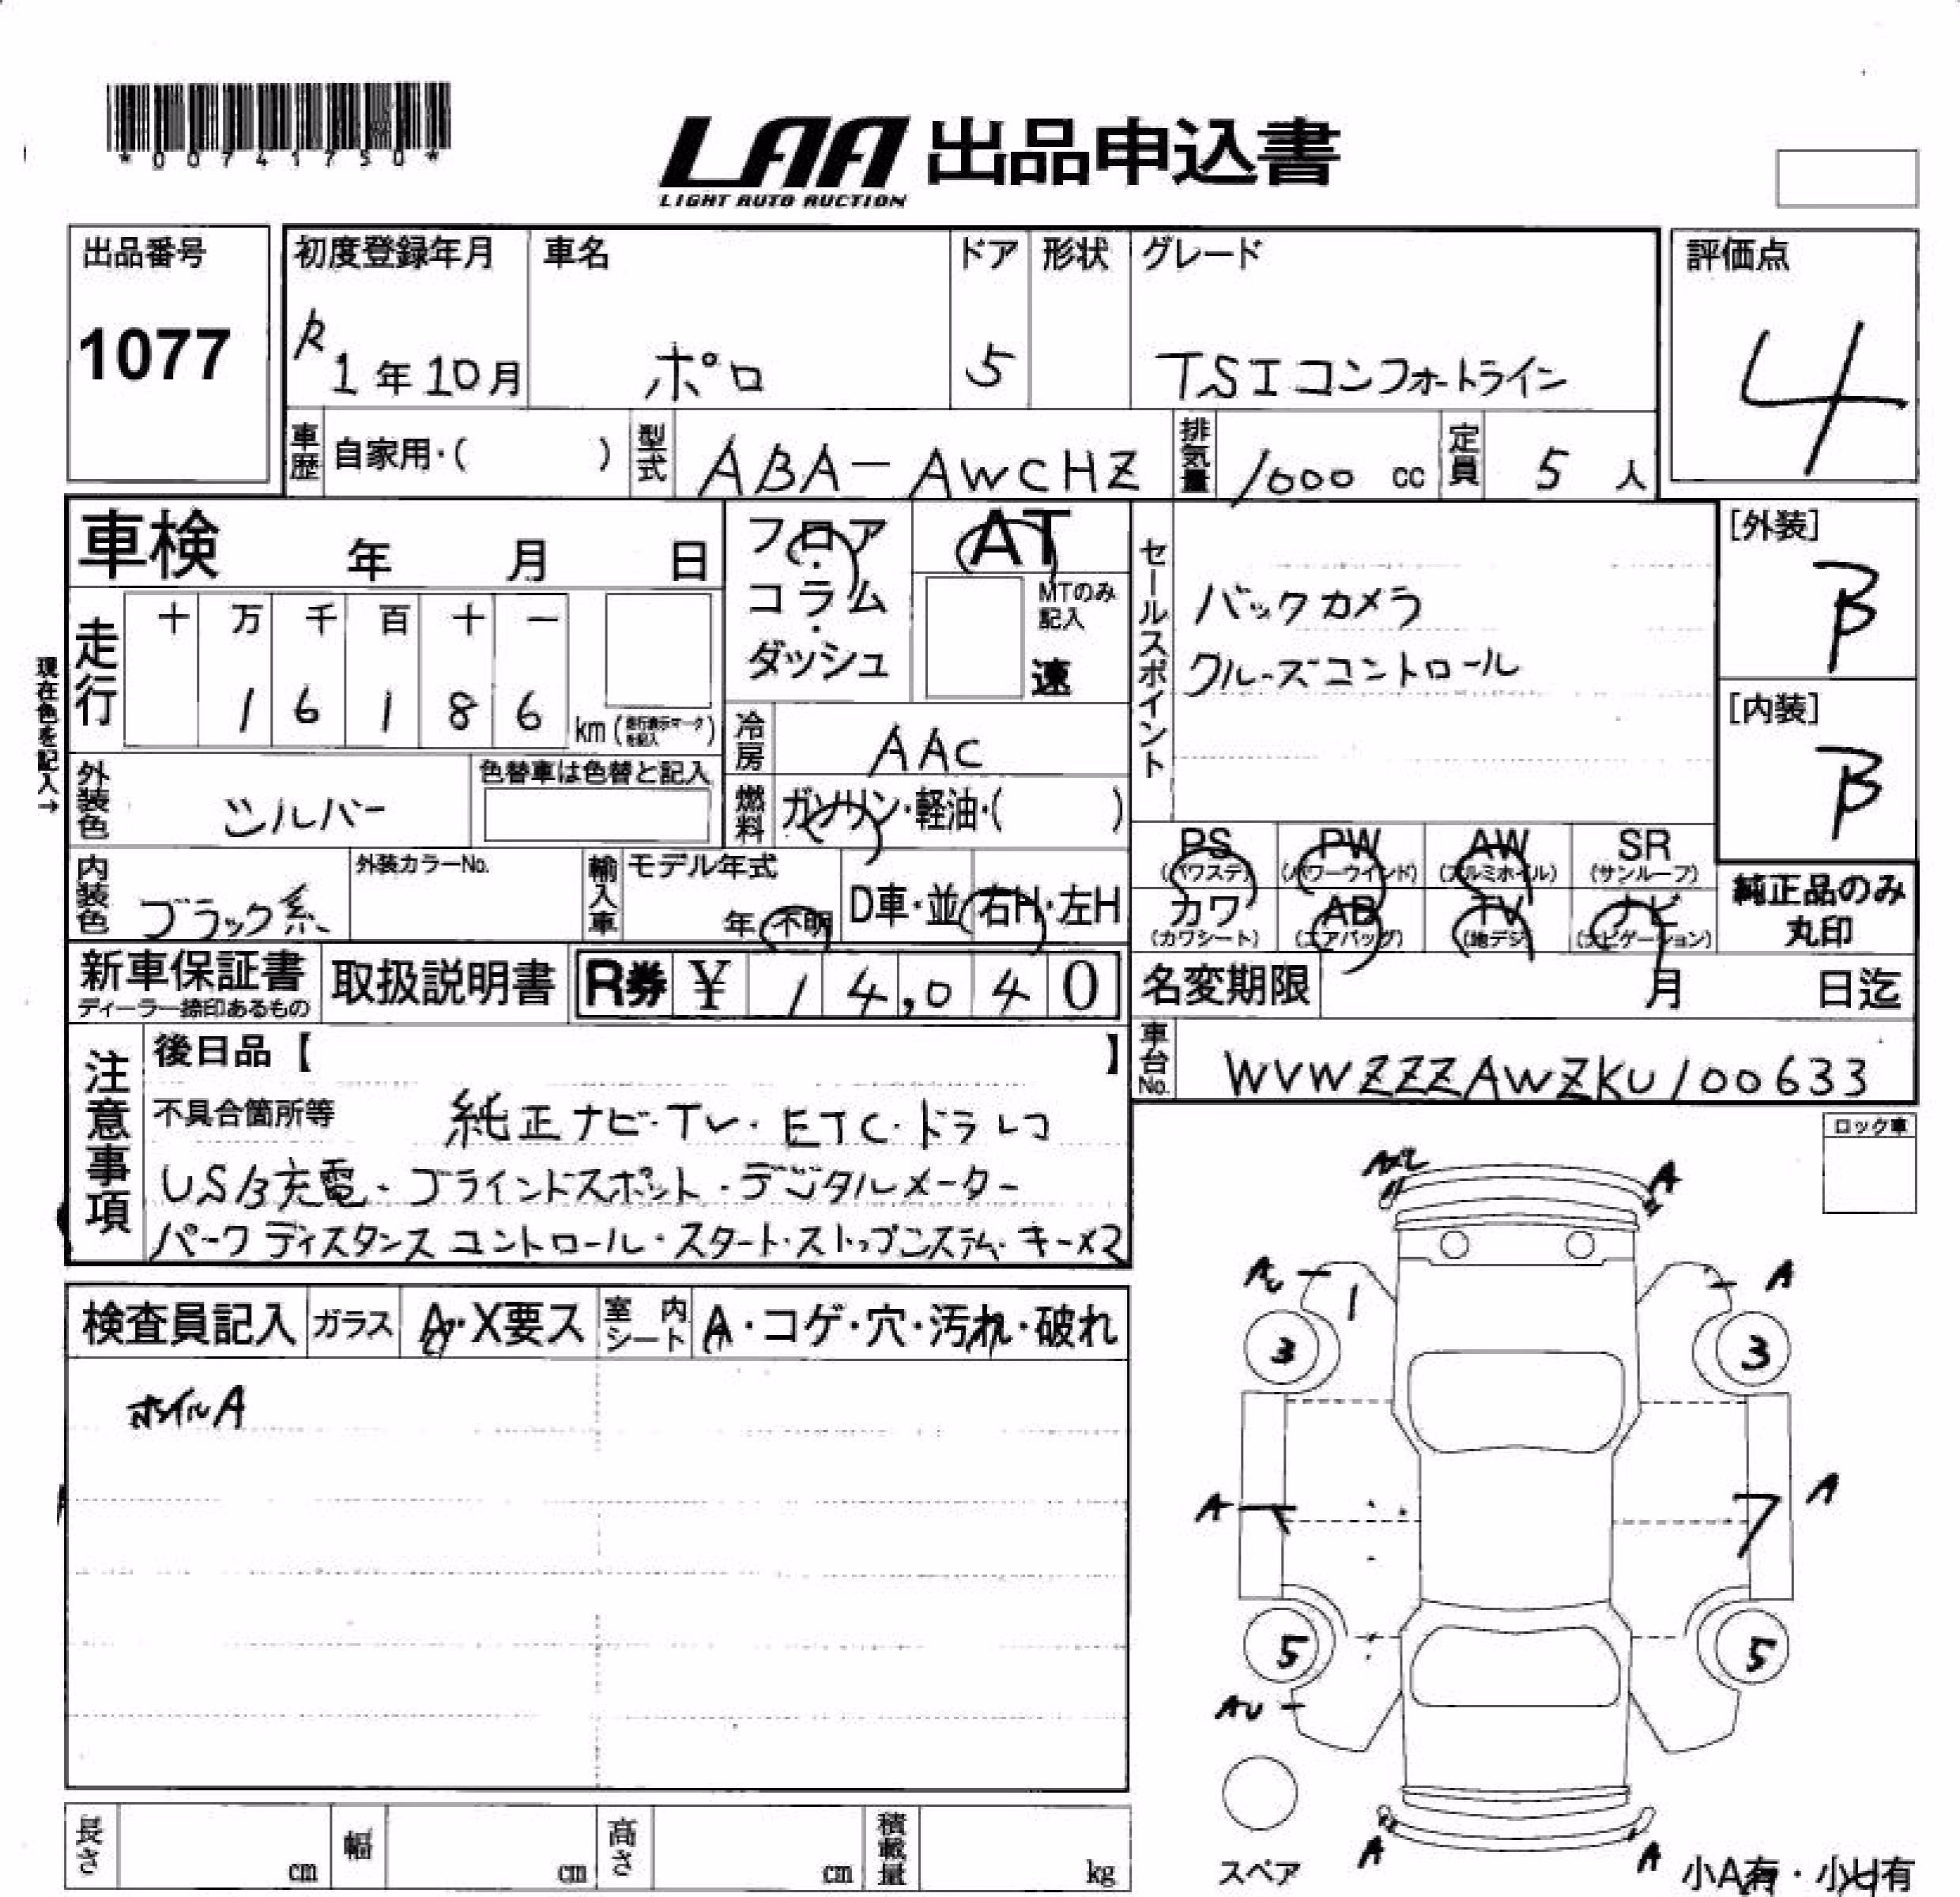 *00741750*
LAA 出品申込書
LIGHT AUTO AUCTION
出品番号
1077
初度登録年月 車名 ドア 形状 グレード
R1年10月 ポロ 5 TSIコンフォートライン
評価点
4
車歴 自家用・( ) 型式 ABA-AWCHZ 排気量 1000 cc 定員 5 人
車検 年 月 日
フロア・コラム・ダッシュ
AT
MTのみ記入
速
セールスポイント
バックカメラ
クルーズコントロール
[外装]
B
[内装]
B
現在色を記入→
走行 十 万 千 百 十 一
1 6 1 8 6 km (走行表示マークを記入)
冷房 AAC
外装色 シルバー 色替車は色替と記入
燃料 ガソリン・軽油・( )
内装色 ブラック系 外装カラーNo.
輸入車 モデル年式
年 不明 D車・並 右H・左H
PS (パワステ) PW (パワーウインド) AW (アルミホイル) SR (サンルーフ)
カワ (カワシート) AB (エアバッグ) TV (地デジ) ナビ (ナビゲーション)
純正品のみ丸印
新車保証書 取扱説明書 R券 ¥ 14,040
ディーラー捺印あるもの
名変期限 月 日迄
車台No. WVWZZZAWZKU100633
注意事項
後日品【 】
不具合箇所等 純正ナビ・TV・ETC・ドラレコ
USB充電・ブラインドスポット・デジタルメーター
パークディスタンスコントロール・スタート・ストップシステム・キー×2
ロック車
検査員記入 ガラス A・X要ス 室内シート A・コゲ・穴・汚れ・破れ
ホイルA
A
A
1
A
3
3
A
A
5
5
AU
スペア
A
A
小A有・小U有
長さ cm 幅 cm 高さ cm 積載量 kg